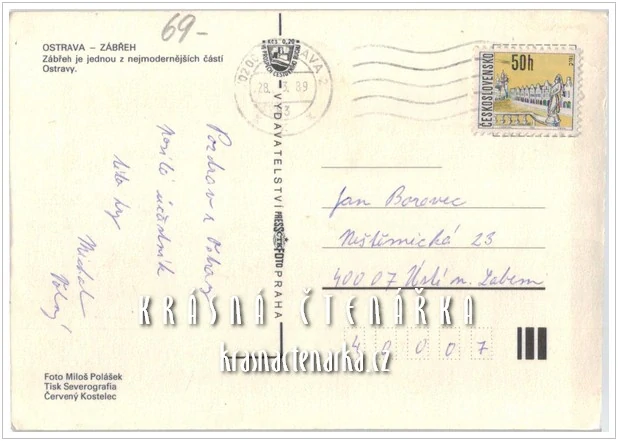 69-
OSTRAVA – ZÁBŘEH
Zábřeh je jednou z nejmodernějších částí
Ostravy.
KČS 0,20
OSTRAVA 2
28. 3. 89
ČESKOSLOVENSKO
50h
VYDAVATELSTVÍ PRESSFOTO PRAHA
Pozdrav z Ostravy
posílá účastník
Michal
Jan Borovec
Neštěmická 23
40007 Ústí n. Labem
40007
KRÁSNÁ ČTENÁŘKA
krasnactenarka.cz
Foto Miloš Polášek
Tisk Severografia
Červený Kostelec